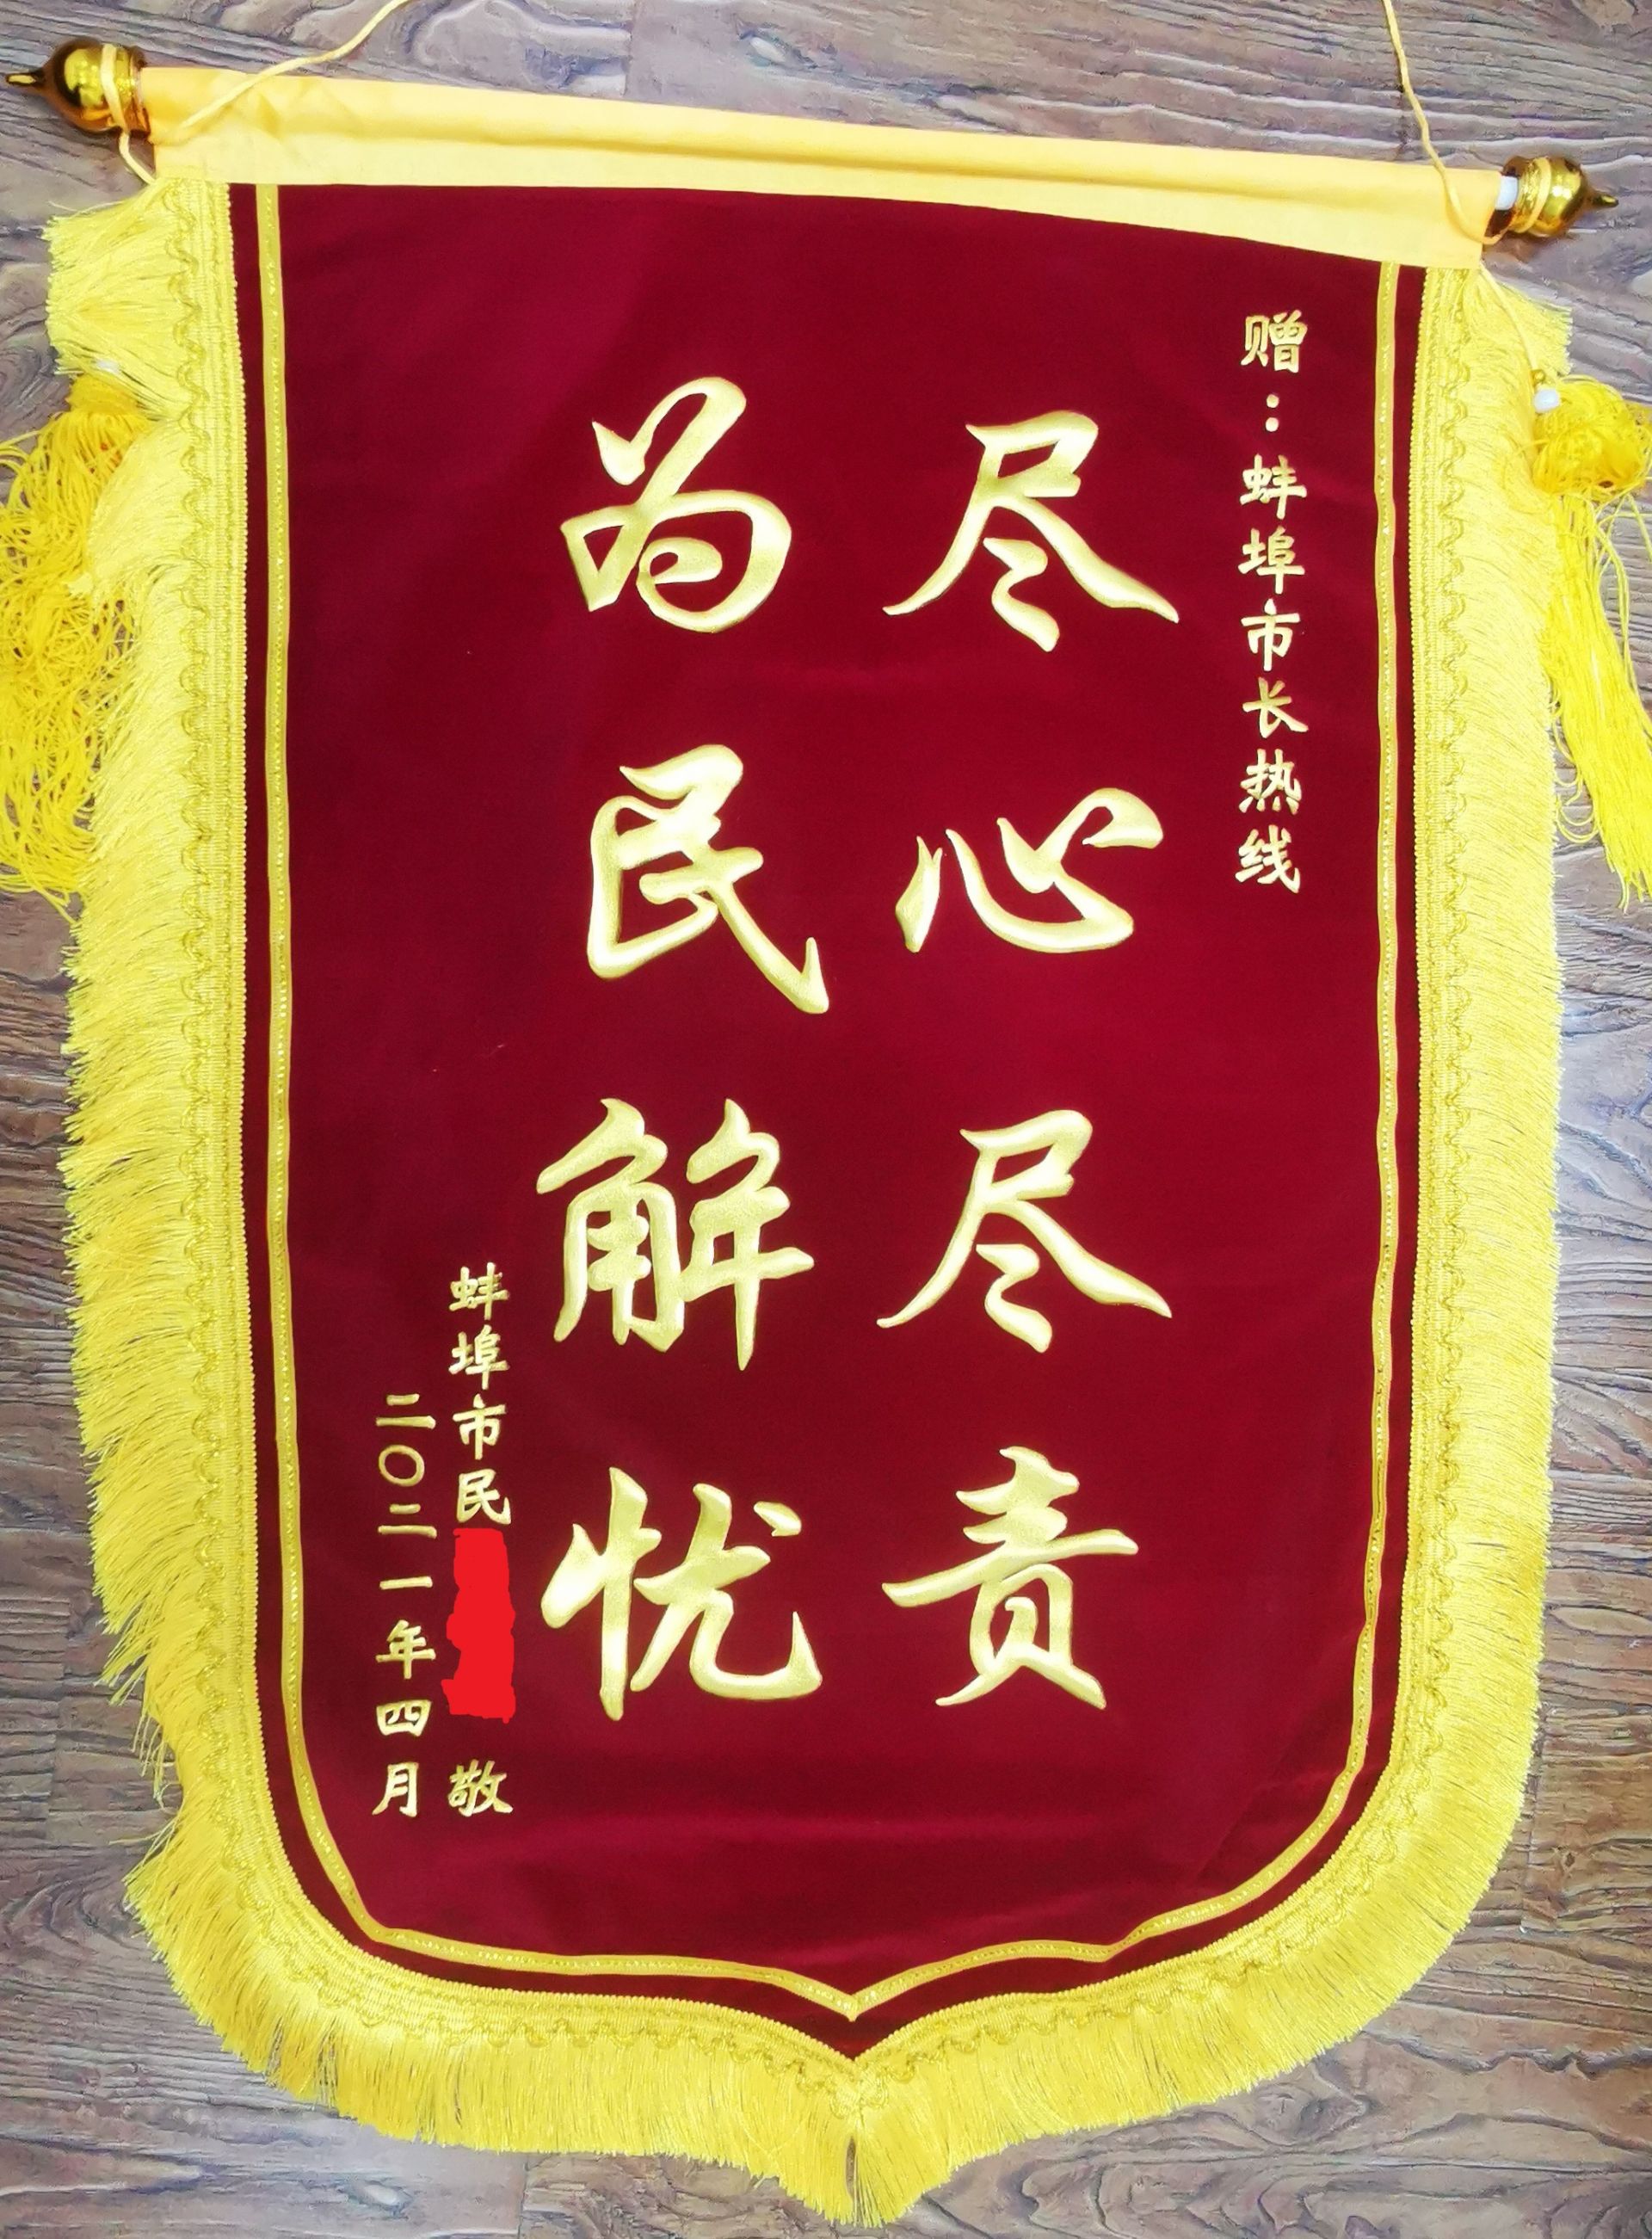 赠：蚌埠市长热线
尽心尽责
为民解忧
蚌埠市民 敬
二〇二一年四月